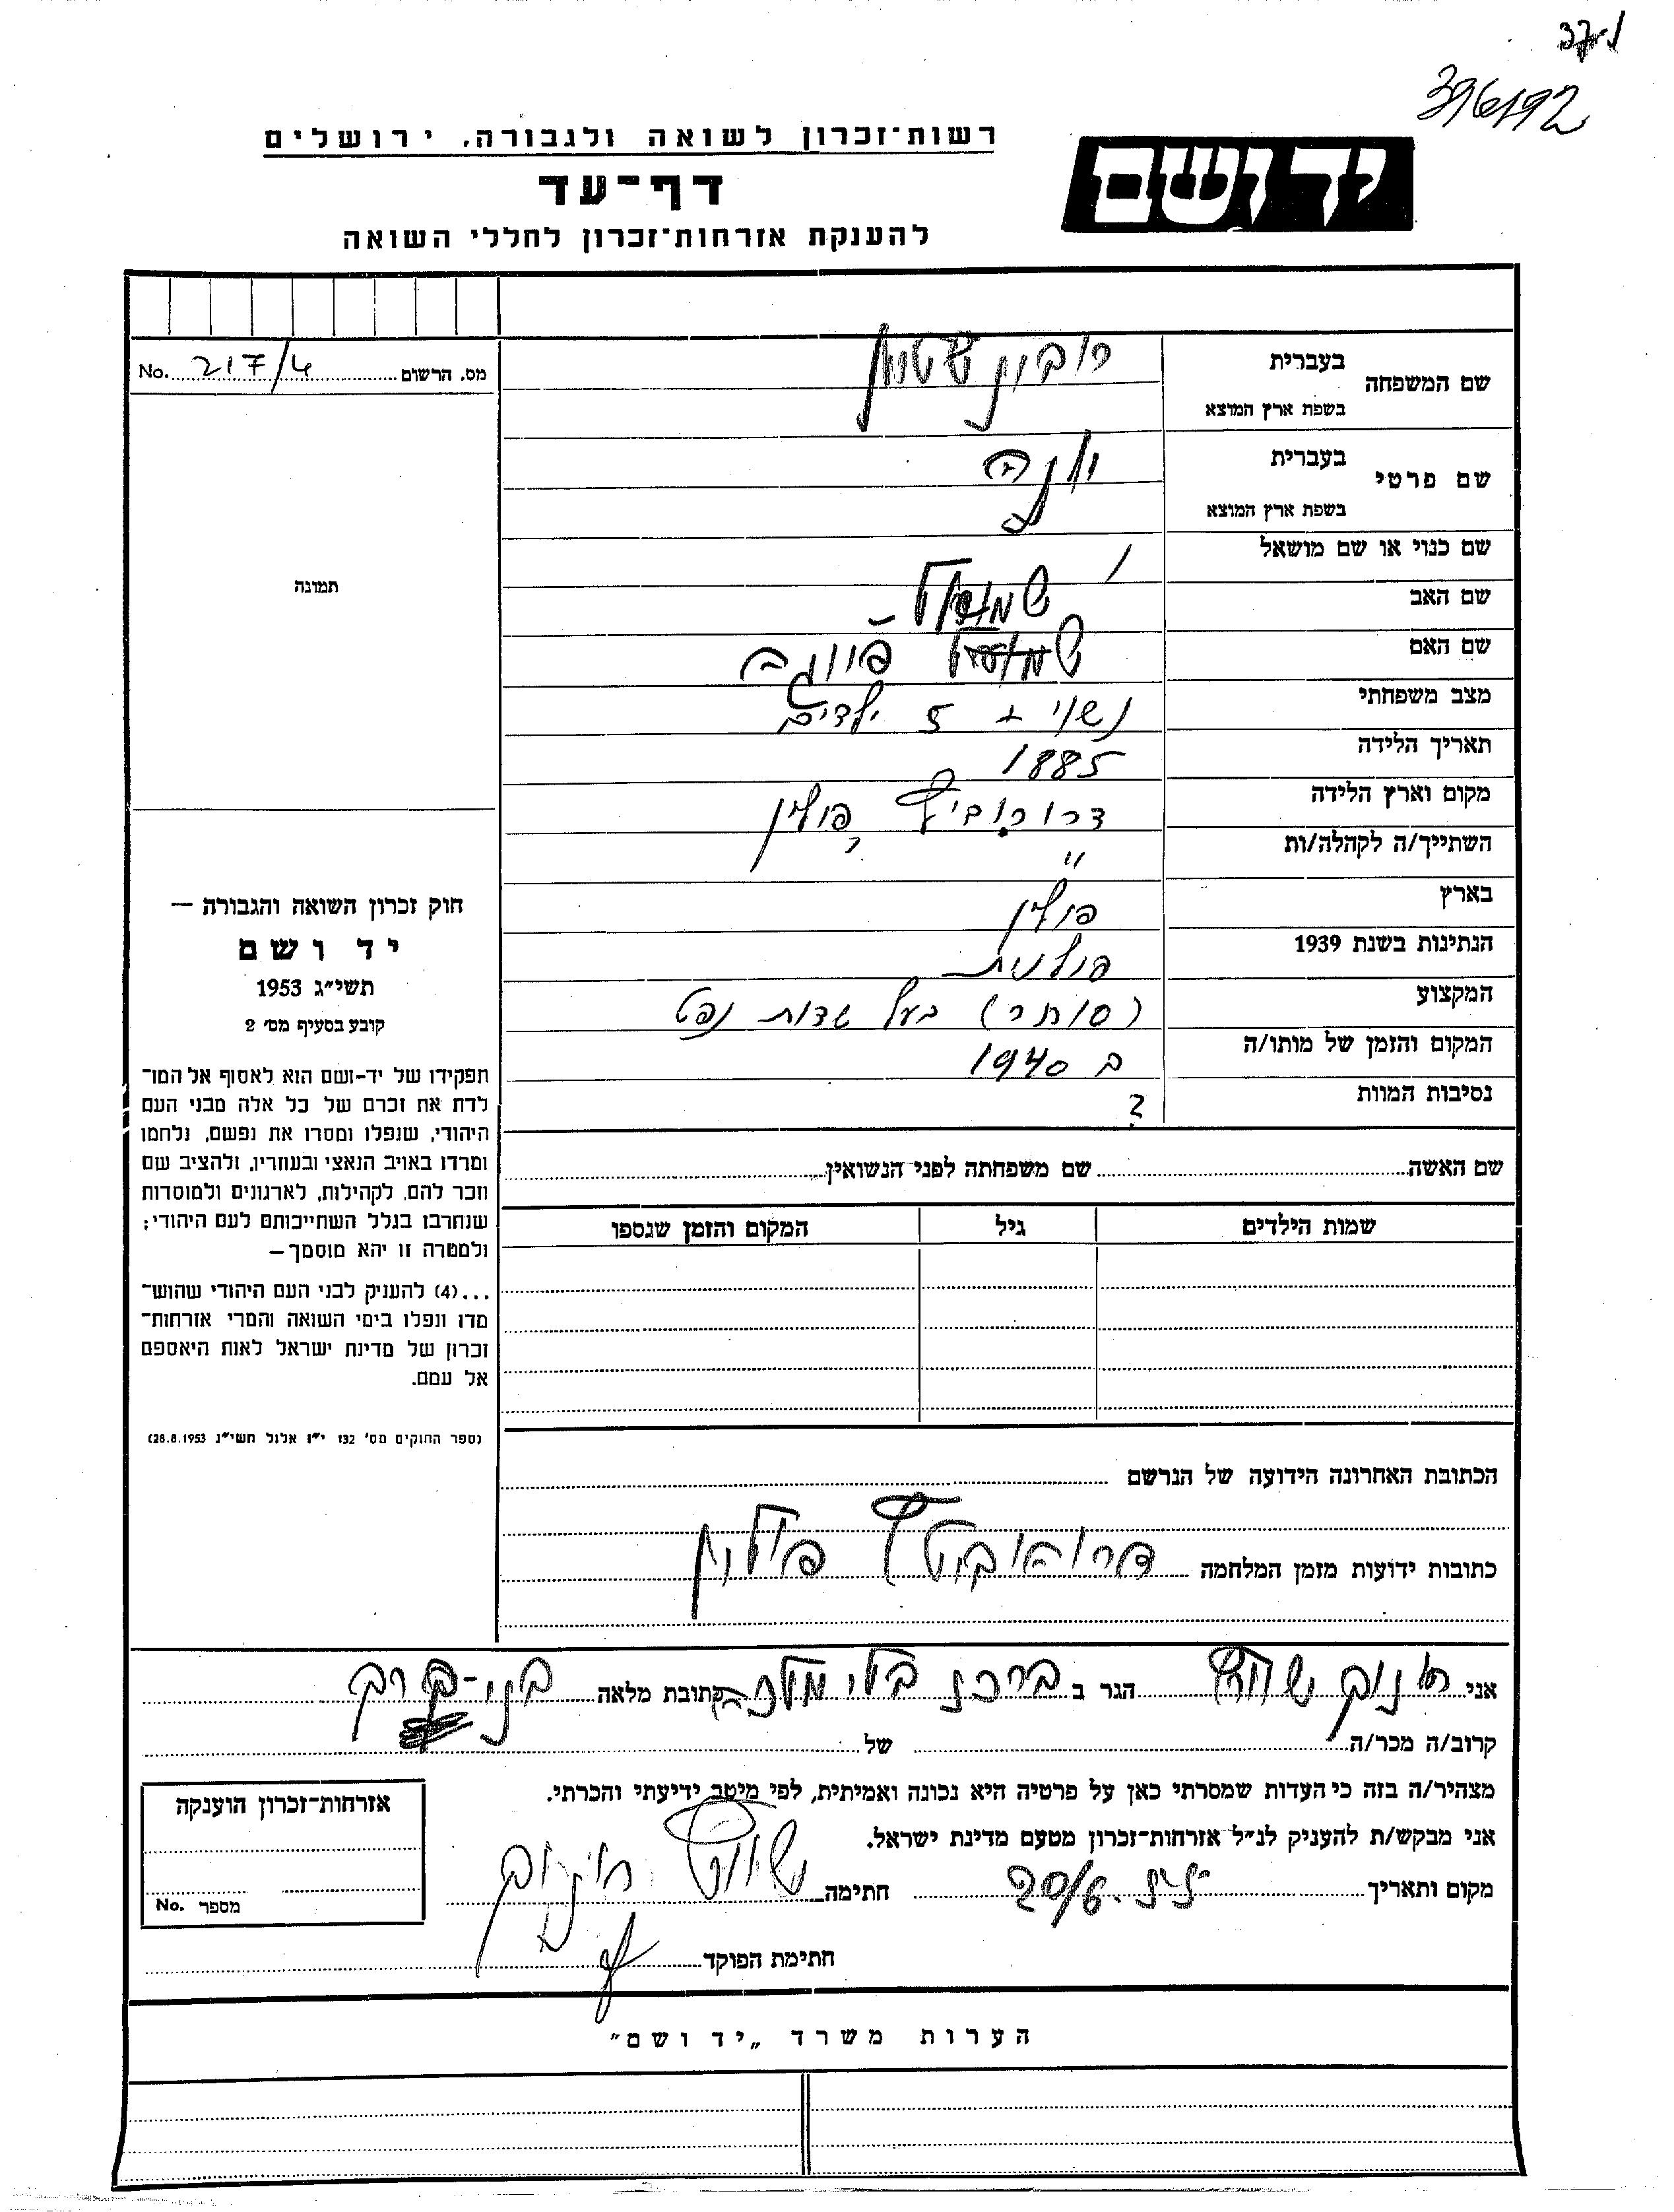 396192
רשות־זכרון לשואה ולגבורה, ירושלים
יד ושם
דף־עד
להענקת אזרחות־זכרון לחללי השואה
מס. הרשום No. 217/4
שם המשפחה בעברית רובינשטיין
בשפת ארץ המוצא
שם פרטי בעברית יונה
בשפת ארץ המוצא
שם כנוי או שם מושאל /
שם האב שמואל
שם האם
מצב משפחתי נשוי + 5 ילדים
תאריך הלידה 1885
מקום וארץ הלידה דרוהוביץ, פולין
השתייך/ה לקהלה/ות "
בארץ פולין
הנתינות בשנת 1939 פולנית
המקצוע (סוחר) בעל שדות נפט
המקום והזמן של מותו/ה ב 1940
נסיבות המוות ?
שם האשה שם משפחתה לפני הנשואין
שמות הילדים גיל המקום והזמן שנספו
תמונה
חוק זכרון השואה והגבורה —
יד ושם
תשי״ג 1953
קובע בסעיף מס׳ 2
תפקידו של יד-ושם הוא לאסוף אל המו־
לדת את זכרם של כל אלה מבני העם
היהודי, שנפלו ומסרו את נפשם, נלחמו
ומרדו באויב הנאצי ובעוזריו, ולהציב שם
וזכר להם, לקהילות, לארגונים ולמוסדות
שנחרבו בגלל השתייכותם לעם היהודי;
ולמטרה זו יהא מוסמך —
...(4) להעניק לבני העם היהודי שהוש־
מדו ונפלו בימי השואה והמרי אזרחות־
זכרון של מדינת ישראל לאות היאספם
אל עמם.
(ספר החוקים מס׳ 132 י״ז אלול תשי״ג 28.8.1953)
הכתובת האחרונה הידועה של הנרשם
כתובות ידועות מזמן המלחמה דרוהוביטץ פולין
אני חנוך הגר ב כתובת מלאה בני-ברק
קרוב/ה מכר/ה של
מצהיר/ה בזה כי העדות שמסרתי כאן על פרטיה היא נכונה ואמיתית, לפי מיטב ידיעתי והכרתי.
אני מבקש/ת להעניק לנ״ל אזרחות־זכרון מטעם מדינת ישראל.
מקום ותאריך 20/6 חתימה חנוך
חתימת הפוקד
אזרחות־זכרון הוענקה
מספר No.
הערות משרד „יד ושם"